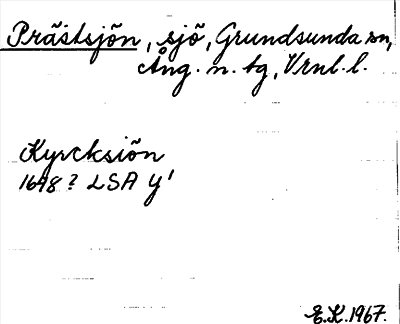 Prästsjön, sjö, Grundsunda sn,
Ång. n. tg, Vrnl. l.
Kyrcksiön
1698? LSA Y1
E.K. 1967.